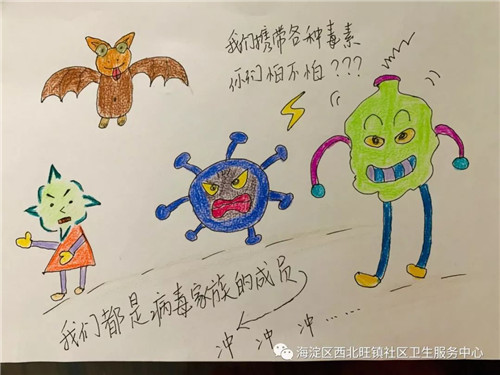 我们携带各种毒素
你们怕不怕???
我们都是病毒家族的成员
冲 冲 冲……
海淀区西北旺镇社区卫生服务中心